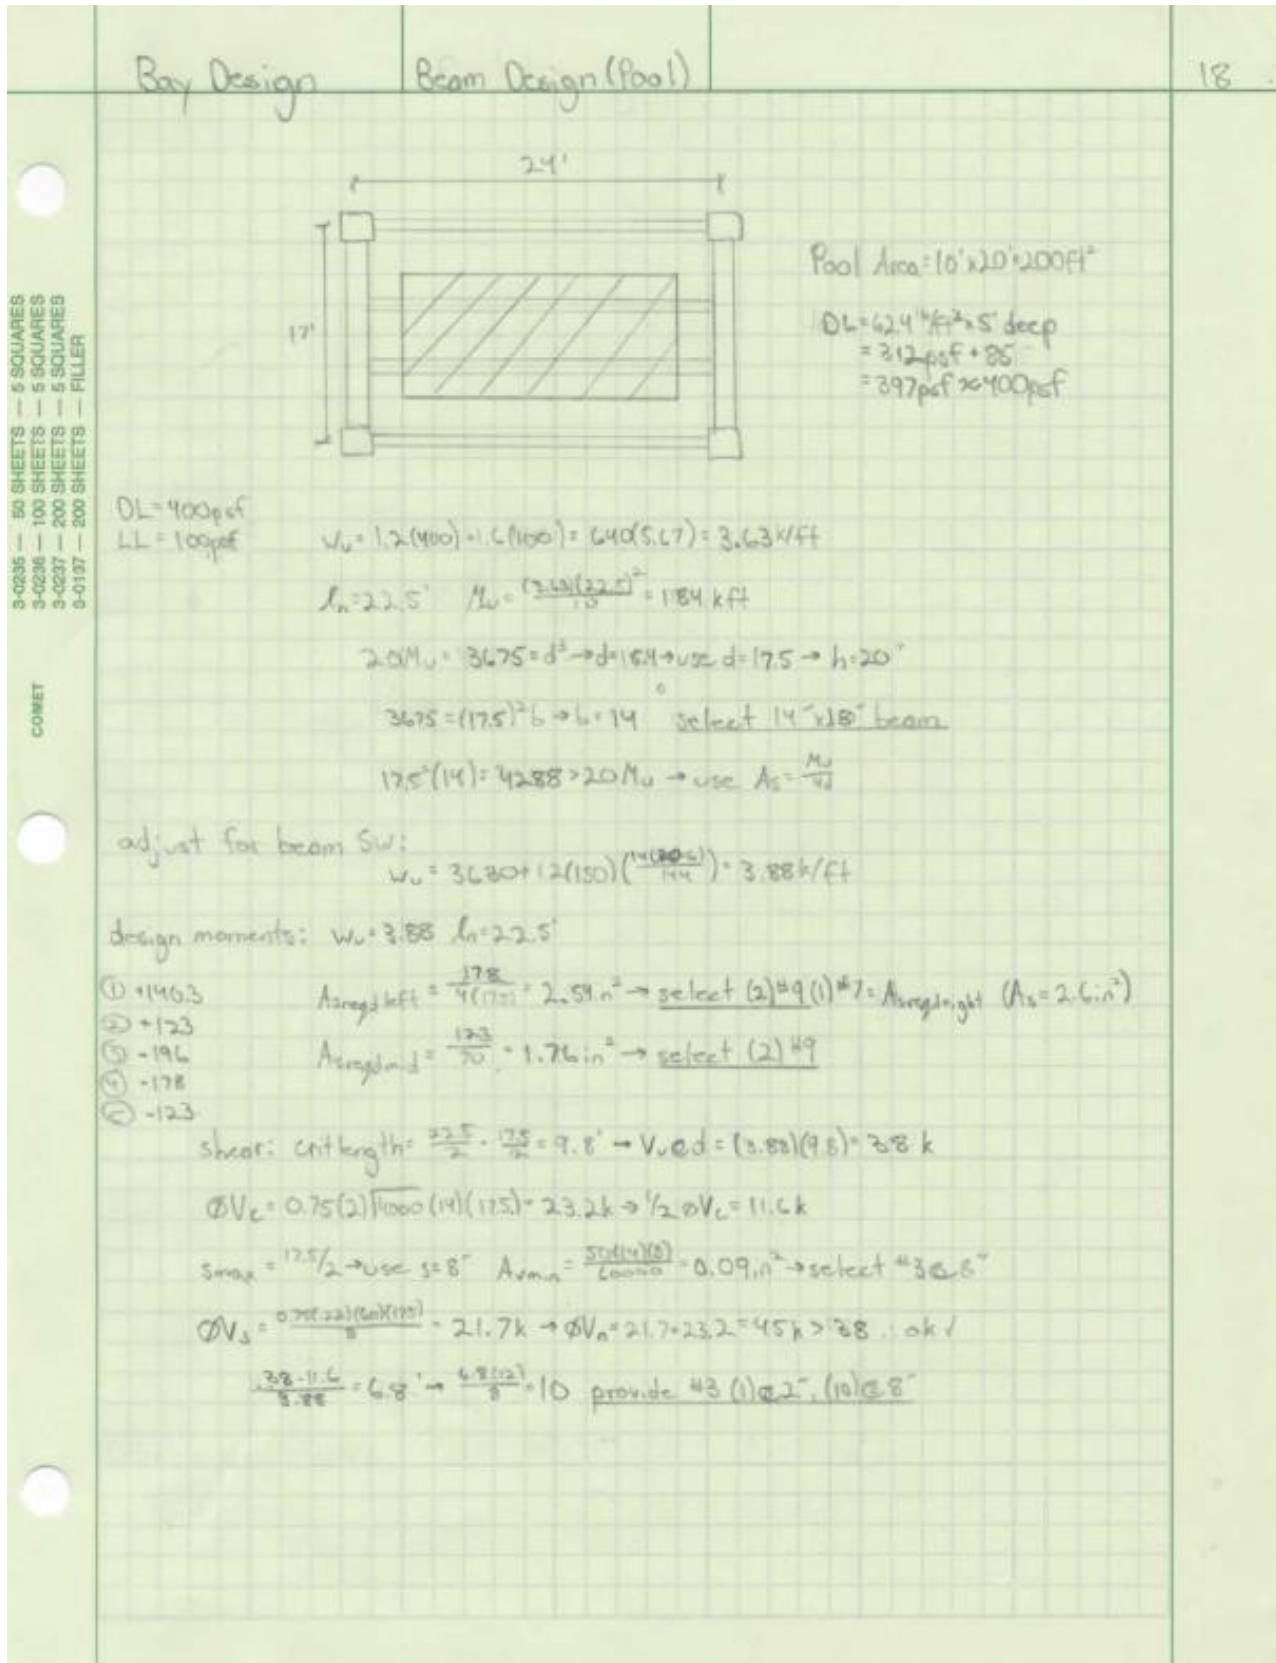 Bay Design
Beam Design (Pool)
18
24'
17'
Pool Area = 10' x 20' = 200ft²
DL = 62.4 lb/ft³ x 5' deep
= 312psf + 85
= 397psf ≈ 400psf
3-0235 — 50 SHEETS — 5 SQUARES
3-0236 — 100 SHEETS — 5 SQUARES
3-0237 — 200 SHEETS — 5 SQUARES
3-0137 — 200 SHEETS — FILLER
COMET
DL = 400psf
LL = 100psf
Wu = 1.2(400) + 1.6(100) = 640(5.67) = 3.63 k/ft
ln = 22.5' Mu = (3.63)(22.5)²/10 = 184 kft
20Mu = 3675 = d³ → d = 15.4 → use d = 17.5 → h = 20"
3675 = (17.5)²b → b = 14 select 14" x 18" beam
17.5²(14) = 4288 > 20Mu → use As = Mu/4d
adjust for beam SW:
Wu = 3630 + 1.2(150)( /144) = 3.88k/ft
design moments: Wu = 3.88 ln = 22.5'
① +140.3
② +123
③ -196
④ -178
⑤ -123
Asreqd left = 178/4(17.5) = 2.54in² → select (2)#9 (1)#7 = Asreqd right (As = 2.6in²)
Asreqd mid = 123/70 = 1.76in² → select (2) #9
shear: crit length = 22.5/2 - 17.5/2 = 9.8' → Vu@d = (3.88)(9.8) = 38 k
ØVc = 0.75(2)√4000 (14)(17.5) = 23.2k → 1/2 ØVc = 11.6k
smax = 17.5/2 → use s = 8" Avmin = 50(14)(8)/60000 = 0.09in² → select #3 @ 8"
ØVs = 0.75(.22)(60)(17.5)/8 = 21.7k → ØVn = 21.7 + 23.2 = 45k > 38 ∴ ok ✓
38-11.6/3.88 = 6.8' → 6.8(12)/8 = 10 provide #3 (1)@2", (10)@8"